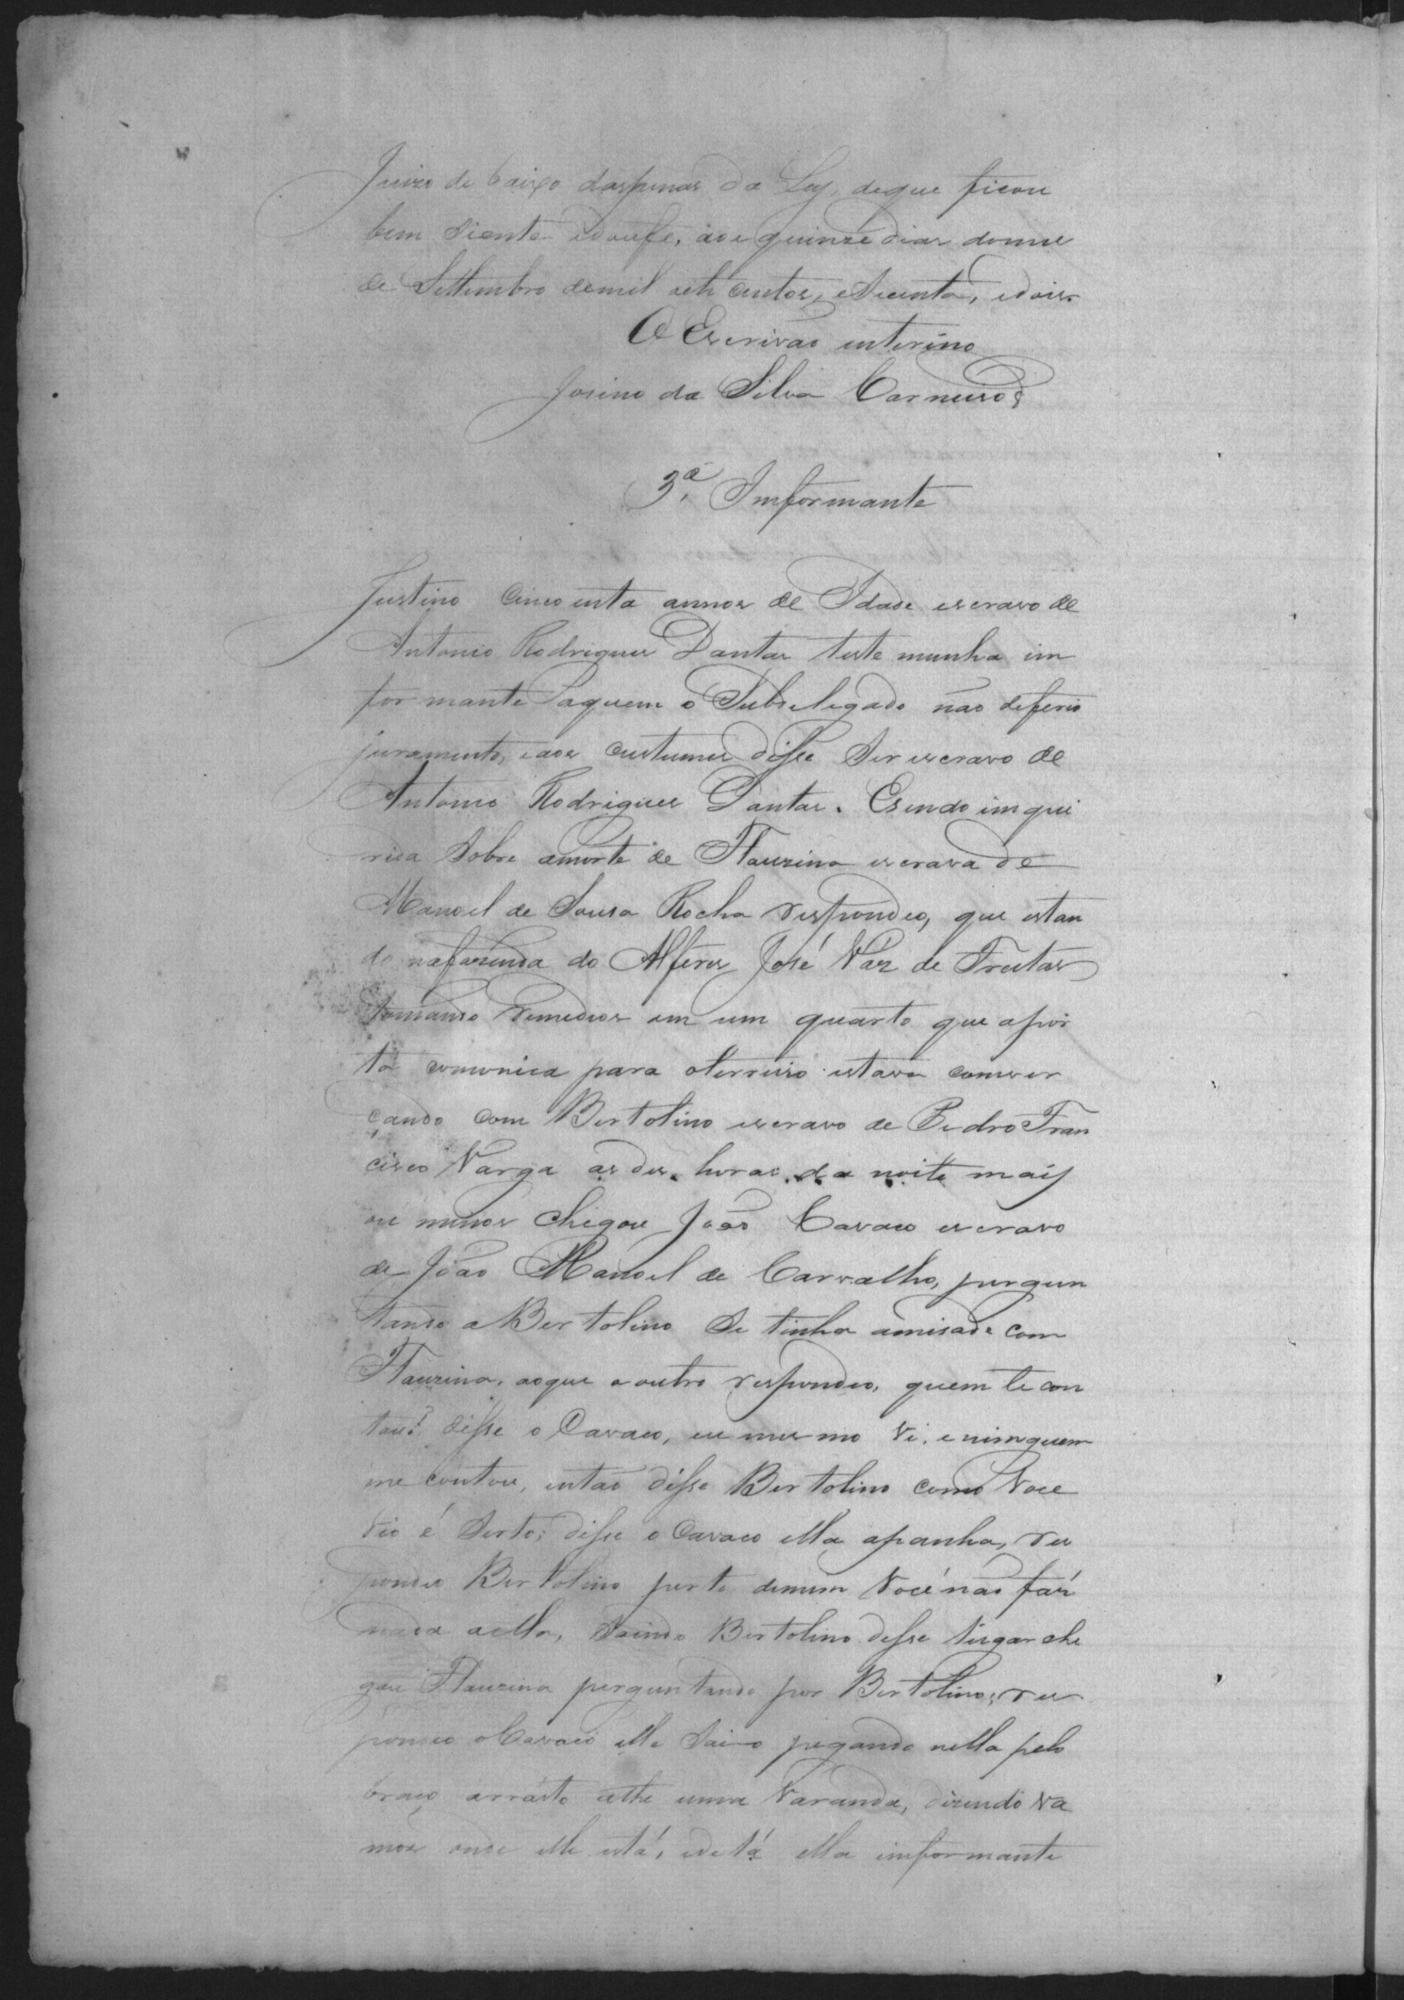 Juizo de baixo das penas da Ley, de que ficou
bem siente e dou fé, aos quinze dias do mes
de Settembro de mil oito centos, e secenta, e dois.
O Escrivão interino
Josino da Silva Carneiro
3ª. Imformante
Justino cincoenta annos de Idade escravo de
Antonio Rodrigues Dantas teste munha im
for mante a quem o Subdelegado não deferio
juramento, e aos custumes disse ser escravo de
Antonio Rodrigues Dantas. E sendo imqui
rida sobre a morte de Flauzina escrava de
Manoel de Sousa Rocha respondeo, que estan
do na fazenda do Alferes José Vaz de Freitas
tomando remedios em um quarto que a por
ta comonica para o terreiro estava conver
çando com Bertolino escravo de Pedro Fran
cisco Varga as des horas da noite mais
ou menos chegou João Cavaco escravo
de João Manoel de Carvalho, pergun
tando a Bertolino se tinha amisade com
Flauzina, ao que o outro respondeo, quem te con
tou? disse o Cavaco, eu mesmo vi, e nimguem
me contou, então disse Bertolino como voce
vio é serto; disse o Cavaco ella apanha, res
pondeo Bertolino perto de mim você não faz
nada a ella, saindo Bertolino desse lugar che
gou Flauzina perguntando por Bertolino; res
pondeo o Cavaco elle saio pegando nella pelo
braço arrasto athe uma varanda, dizendo va
mos onde elle está, e de lá ella imformante